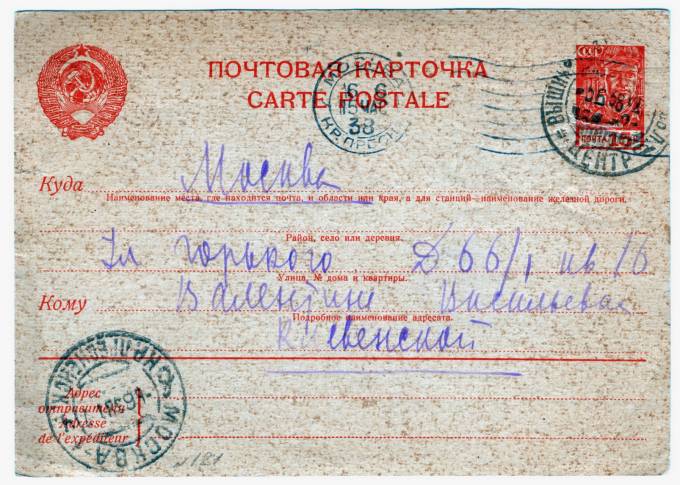 ПОЧТОВАЯ КАРТОЧКА
CARTE POSTALE
Куда
Москва
Наименование места, где находится почта, и области или края, а для станций- наименование железной дороги.
Район, село или деревня.
Ул Горького Д 66/1 кв 16
Улица, № дома и квартиры.
Кому
Валентине Васильевне
Подробное наименование адресата.
Адрес
отправителя
Adresse
de l'expéditeur
МОСКВА
38
№ 181